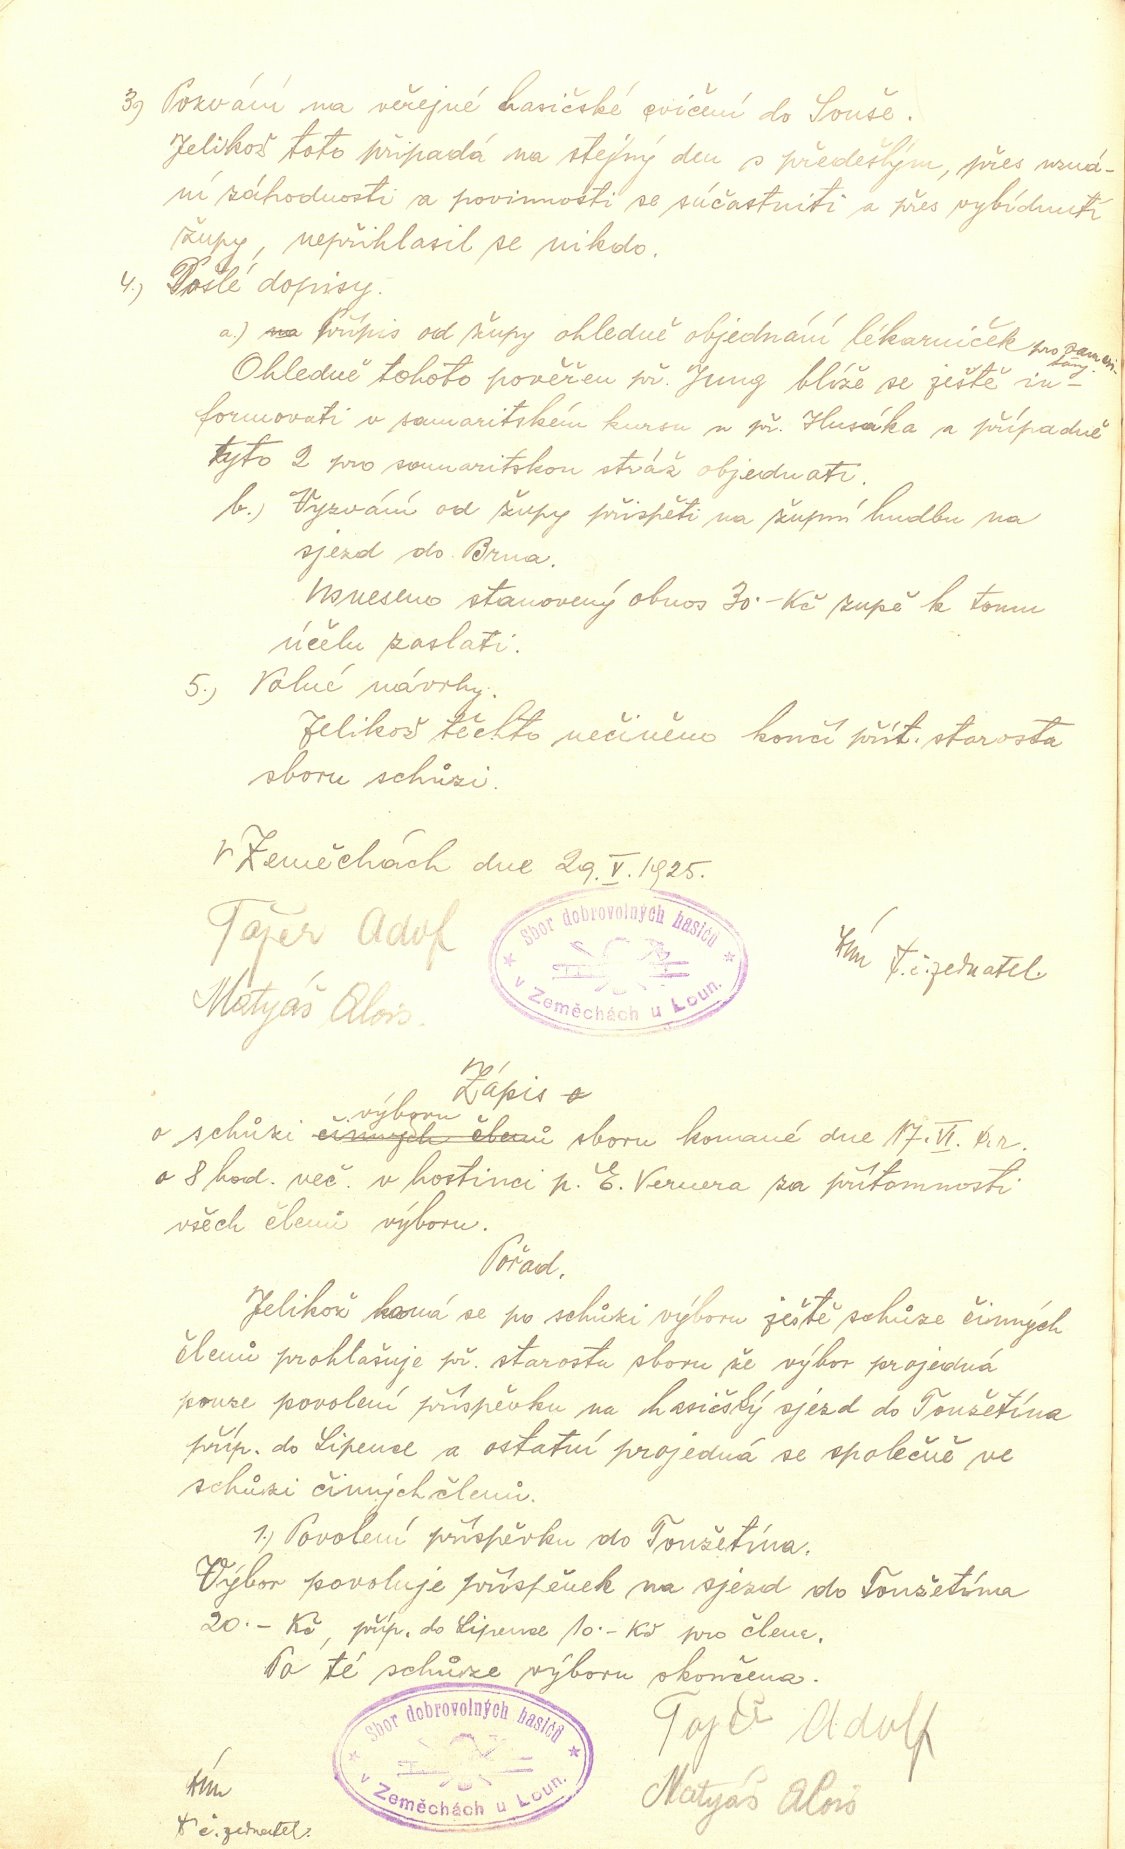 3.) Pozvání na veřejné hasičské cvičení do Souše.
Jelikož toto připadá na stejný den s předešlým, přes uzná-
ní záhodnosti a povinnosti se súčastniti a přes vybídnutí
župy, nepřihlasil se nikdo.
4.) Došlé dopisy.
a.) na přípis od župy ohledně objednání lékarniček pro samari-
tány.
Ohledně tohoto pověřen př. Jung blíže se ještě in-
formovati v samaritském kursu u př. Husáka a případně
tyto 2 pro samaritskou stráž objednati.
b.) Vyzvání od župy přispěti na župní hudbu na
sjezd do Brna.
Usneseno stanovený obnos 30.- Kč župě k tomu
účelu zaslati.
5.) Volné návrhy.
Jelikož těchto nečiněno končí přít. starosta
sboru schůzi.
V Zeměchách dne 29.V.1925.
Tajer Adolf
Sbor dobrovolných hasičů
v Zeměchách u Loun.
t.č. jednatel.
Matyáš Alois.
Zápis o
výboru
o schůzi činných členů sboru konané dne 17.VI. t.r.
o 8 hod. več. v hostinci p. E. Vernera za přítomnosti
všech členů výboru.
Pořad.
Jelikož koná se po schůzi výboru ještě schůze činných
členů prohlašuje př. starosta sboru že výbor projedná
pouze povolení příspěvku na hasičský sjezd do Toužetína
příp. do Lipence a ostatní projedná se společně ve
schůzi činných členů.
1.) Povolení příspěvku do Toužetína.
Výbor povoluje příspěvek na sjezd do Toužetína
20.- Kč, příp. do Lipence 10.- Kč pro člena.
Po té schůze výboru skončena.
Sbor dobrovolných hasičů
v Zeměchách u Loun.
Tajer Adolf
Matyáš Alois
t.č. jednatel.